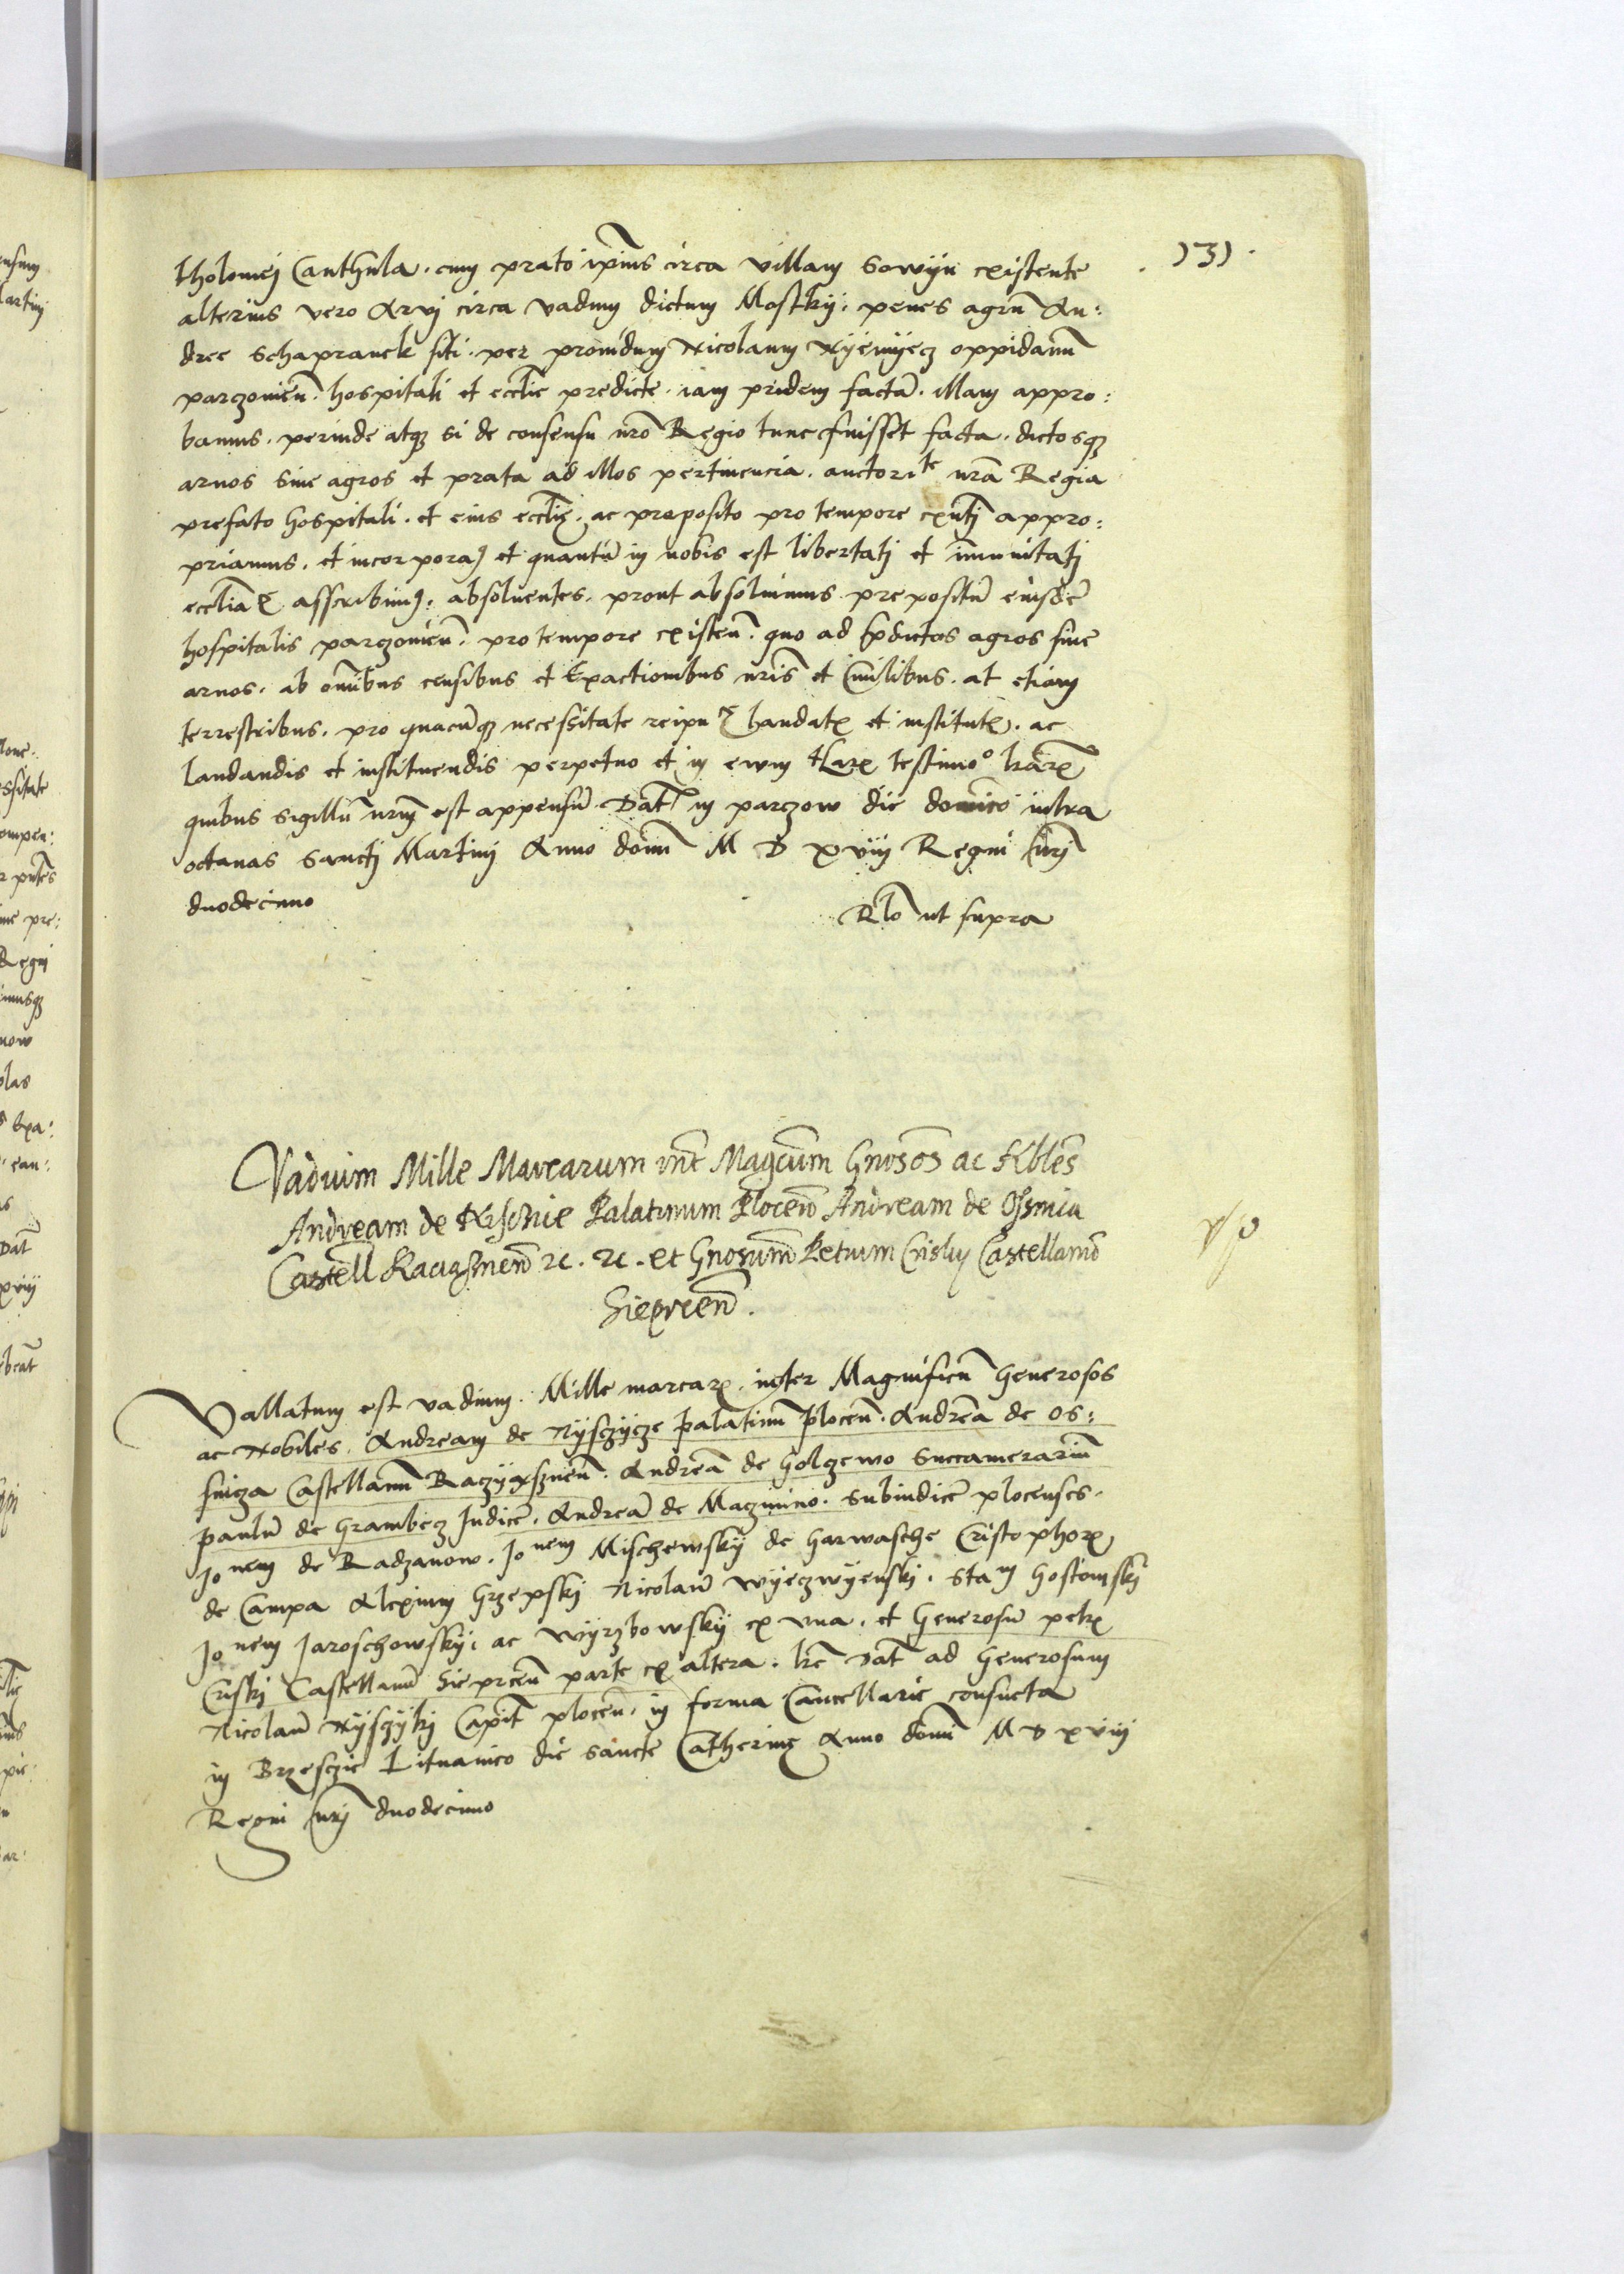 131
tholomej Canthula. cum prato ipius circa villam Sowÿn existente
alterius vero Arvj circa vadum dictum Mostkÿ. penes agrū An:
dree Schapranek siti. per prouidum Nicolaum Nyemyecz oppidanū
parczouieñ. hospitali et ecclie predicte. iam pridem factā. illam appro:
bamus. perinde atqz si de consensu nr̄o Regio tunc fuisset facta. dictosqz
aruos siue agros et prata ad illos pertinencia. auctorite nr̄a Regia
prefato hospitali. et eius ecclie. ac preposito pro tempore exntj appro:
priamus. et incorporam9 et quantū in nobis est libertatj et im̄unitatj
asscribim9: absoluentes. prout absoluimus prepositū eiusdē
hospitalis parczouieñ. pro tempore existeñ. quo ad predictos agros siue
aruos. ab om̄ibus censibus et Exactionibus nr̄is et ciuilibus. at etiam
terrestribus. pro quacūqz necessitate reipu et institut. ac
laudandis et instituendis perpetuo et in ewm testimo lr̄arꝝ
quibus sigillū nrm̄ est appensū Dat̄ in parczow die domīco intra
octauas Sanctj Martinj Anno domī M D xviij Regni nrj
duodecimo
Rlō ut supra
Vadium Mille Marcarum int̄ Magcūm Gnosos ac Nbles
Andream de Nischic Palatinum Plocen̄ Andream de Ossnica
Castell Raciąsnen̄ 2c. 2c. et Gnosum̄ Petrum Crisky Castellanū
Siepreen̄.
Vallatum est vadium. Mille marcarꝝ. inter Magnificū Generosos
ac Nobiles. Andream de Nÿsczÿcze palatinū ploceñ. Andreā de Os:
snicza Castellanū Raczÿąszneñ. Andreā de Golczewo Succamerariū
paulū de Grambecz Judicē. Andreā de Maczinino. Subiudicē plocenses.
Jonem de Radzanow. Jonem Mischewskÿ de Garwasche Cristophorꝝ
de Campa Alexium Grzepskj Nicolaū Wÿeczwÿenskj. Stam Gostomskj
Jonem Jaroschowskÿ. ac Wyrzbowskÿ ex vna. et Generosū petrꝝ
Criskj Castellanū Siepreeñ parte ex altera. lrē Dat̄ ad Generosum
Nicolaū Nÿsczÿkj Capit̄ ploceñ. in forma Cancellarie consueta
in Brzesczie Lituanico die sancte Catherine Anno domī M D xviij
Regni nrj duodecimo